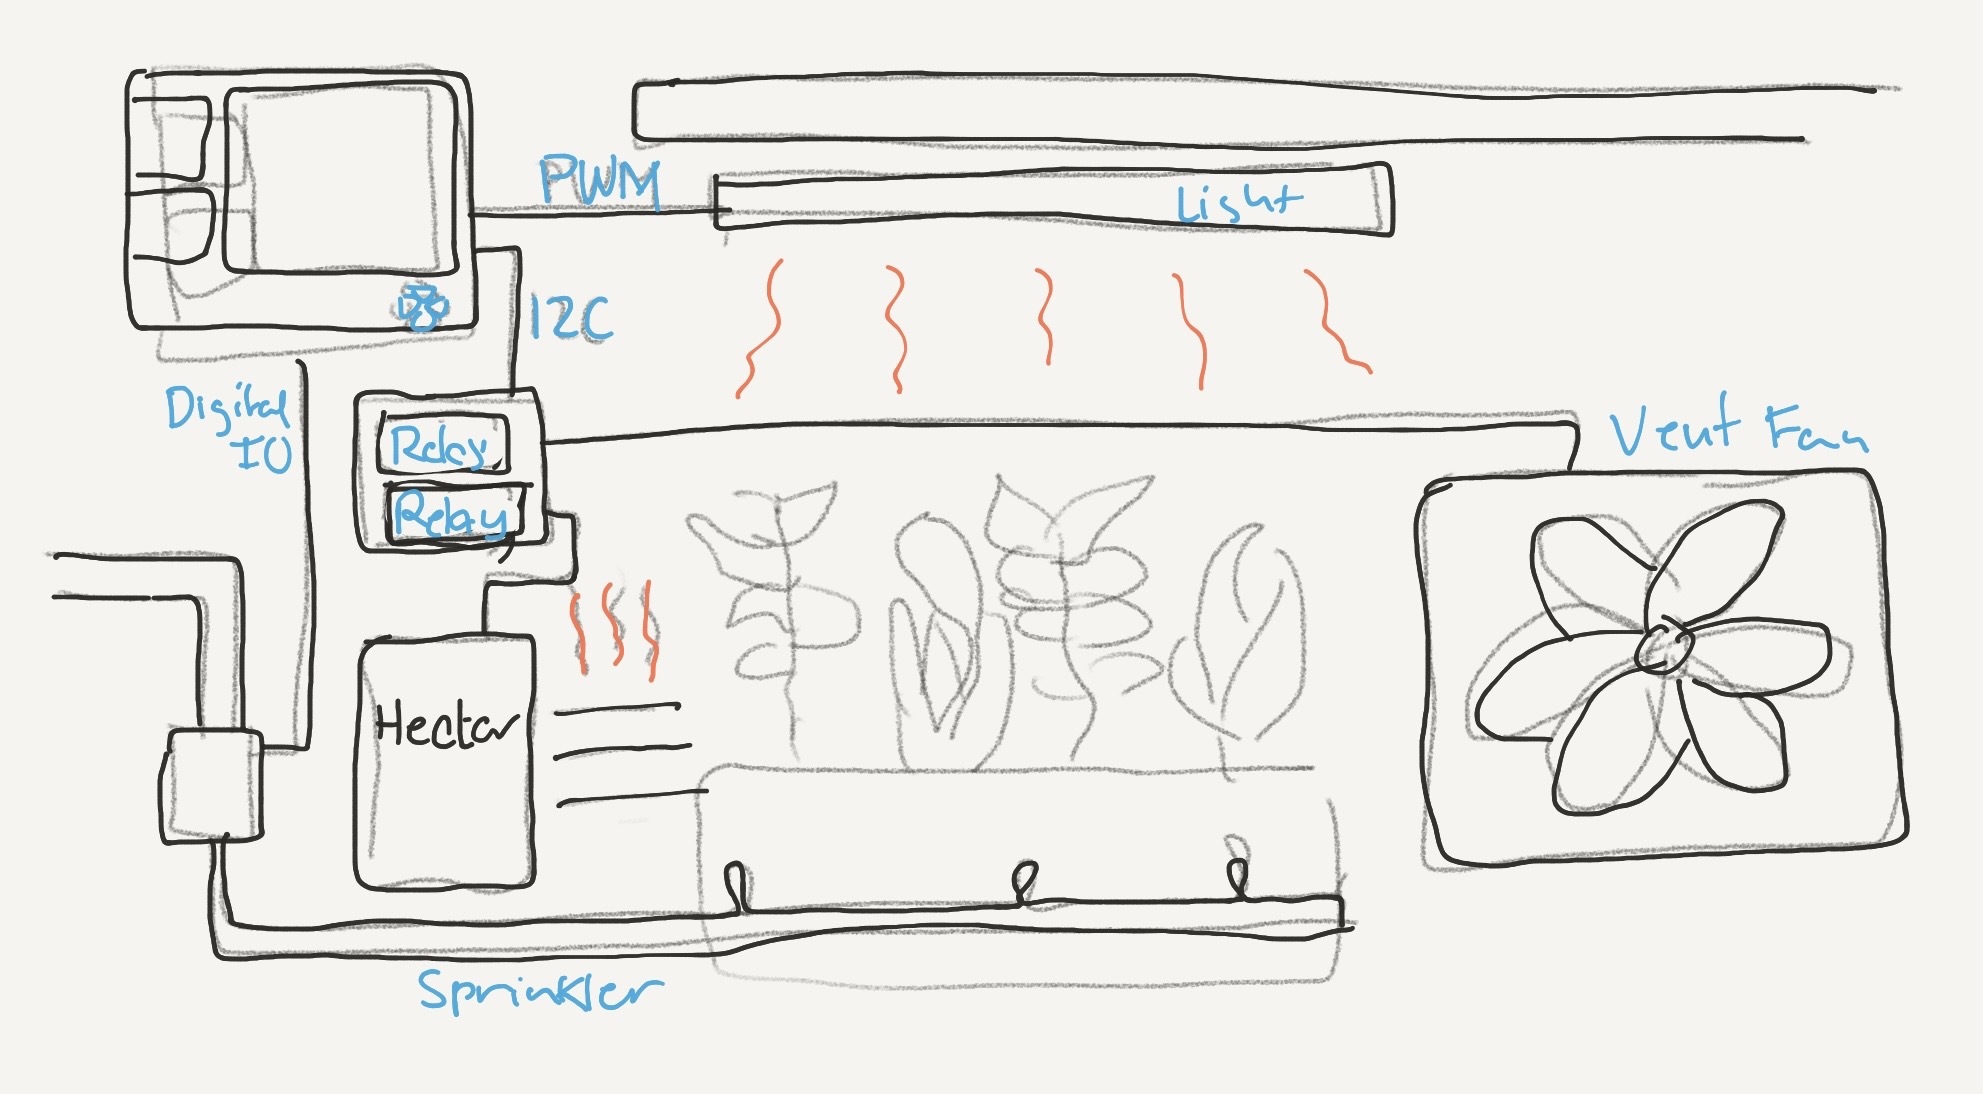 PWM
Light
I2C
Digital
IO
Relay
Relay
Vent Fan
Heator
Sprinkler